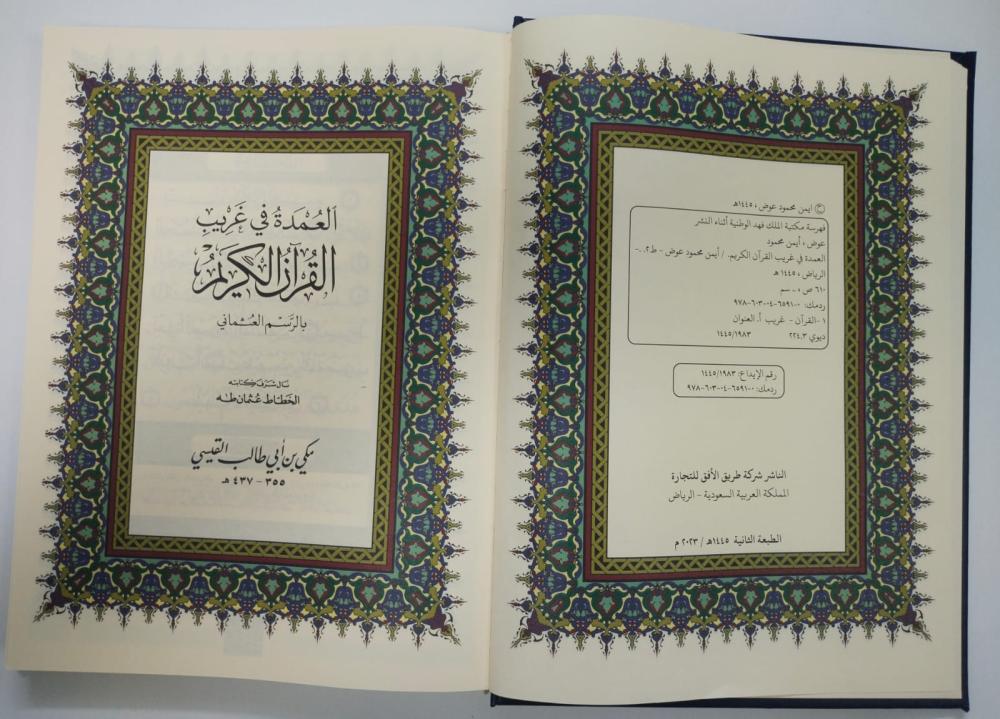 © أيمن محمود عوض ، ١٤٤٥هـ
فهرسة مكتبة الملك فهد الوطنية أثناء النشر
عوض ، أيمن محمود
العمدة في غريب القرآن الكريم. / أيمن محمود عوض - ط٢. -
الرياض ، ١٤٤٥ هـ
٦١٠ ص ، .. سم
ردمك: ٠-٦٥٩١-٠٤-٦٠٣-٩٧٨
١-القرآن - غريب أ. العنوان
ديوي ٢٢٤,٣ ١٤٤٥/١٩٨٣
رقم الإيداع: ١٤٤٥/١٩٨٣
ردمك: ٠-٦٥٩١-٠٤-٦٠٣-٩٧٨
الناشر شركة طريق الأفق للتجارة
المملكة العربية السعودية - الرياض
الطبعة الثانية ١٤٤٥هـ / ٢٠٢٣ م
العُمدَةُ في غَرِيبِ
القُرآنِ الكَرِيمُ
بالرَّسْمِ العُثماني
نال شرف كتابته
الخطاط عثمان طه
مكي بن أبي طالب القيسي
٣٥٥ - ٤٣٧ هـ